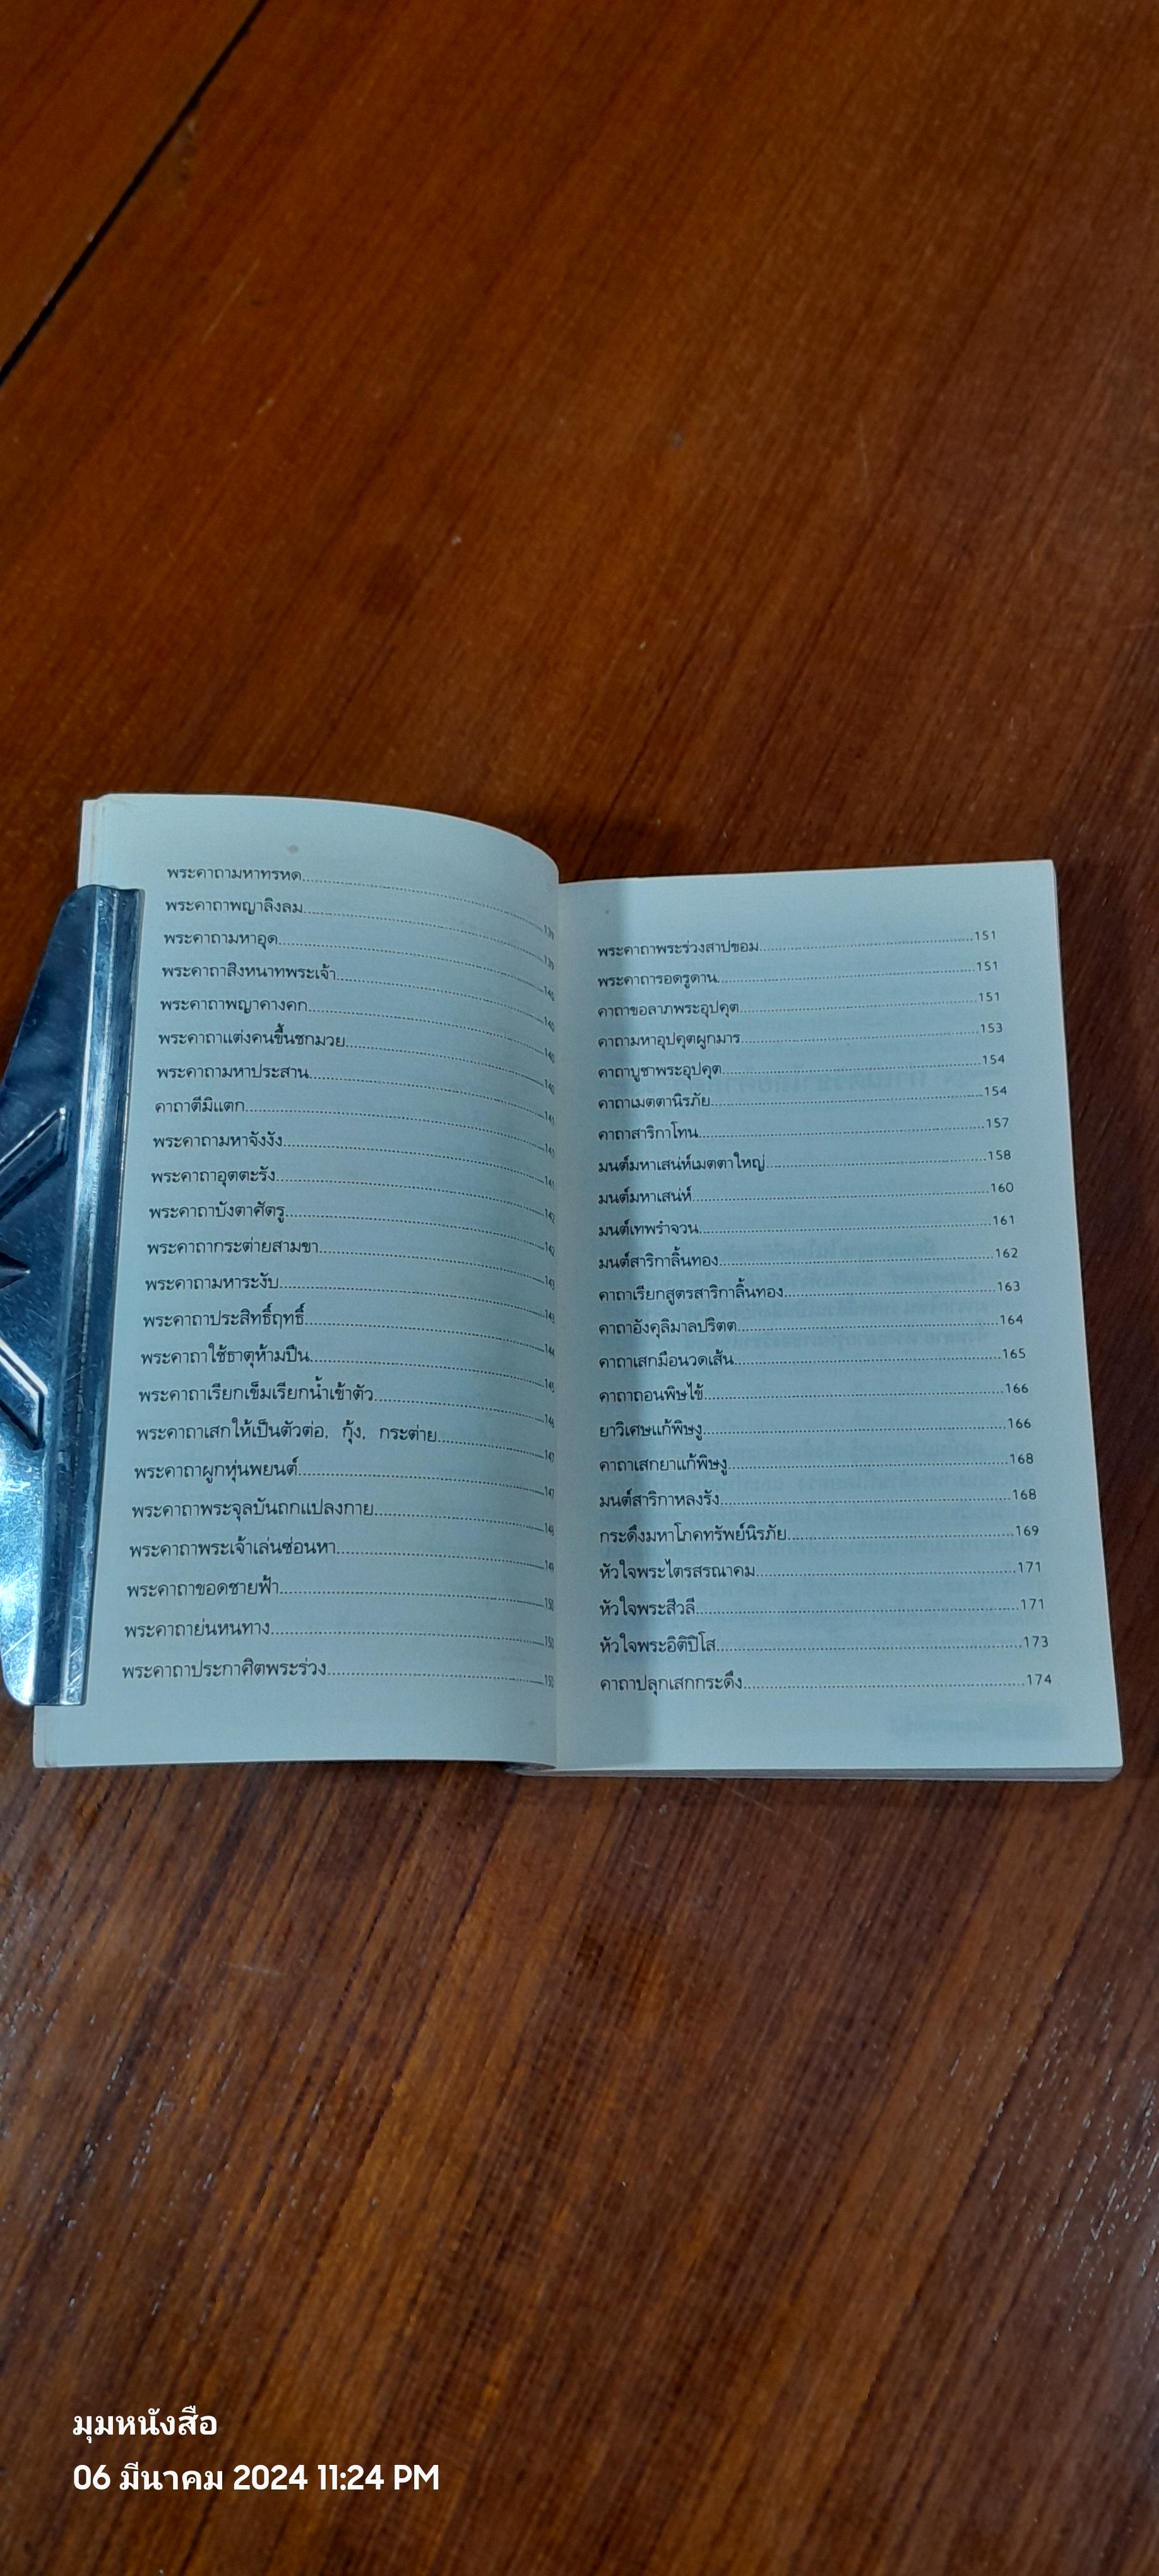 พระคาถามหาทรหด.....139
พระคาถาพญาลิงลม.....139
พระคาถามหาอุด.....140
พระคาถาสิงหนาทพระเจ้า.....140
พระคาถาพญาคางคก.....140
พระคาถาแต่งคนขึ้นชกมวย.....140
พระคาถามหาประสาน.....141
คาถาตีมิแตก.....141
พระคาถามหาจังงัง.....141
พระคาถาอุตตะรัง.....142
พระคาถาบังตาศัตรู.....142
พระคาถากระต่ายสามขา.....143
พระคาถามหาระงับ.....143
พระคาถาประสิทธิ์ฤทธิ์.....144
พระคาถาใช้ธาตุห้ามปืน.....145
พระคาถาเรียกเข็มเรียกน้ำเข้าตัว.....146
พระคาถาเสกให้เป็นตัวต่อ, กุ้ง, กระต่าย.....147
พระคาถาผูกหุ่นพยนต์.....147
พระคาถาพระจุลบันถกแปลงกาย.....148
พระคาถาพระเจ้าเล่นซ่อนหา.....149
พระคาถาขอดชายฟ้า.....150
พระคาถาย่นหนทาง.....150
พระคาถาประกาศิตพระร่วง.....150
พระคาถาพระร่วงสาปขอม.....151
พระคาถารอดรูดาน.....151
คาถาขอลาภพระอุปคุต.....151
คาถามหาอุปคุตผูกมาร.....153
คาถาบูชาพระอุปคุต.....154
คาถาเมตตานิรภัย.....154
คาถาสาริกาโทน.....157
มนต์มหาเสน่ห์เมตตาใหญ่.....158
มนต์มหาเสน่ห์.....160
มนต์เทพรำจวน.....161
มนต์สาริกาลิ้นทอง.....162
คาถาเรียกสูตรสาริกาลิ้นทอง.....163
คาถาอังคุลิมาลปริตต.....164
คาถาเสกมือนวดเส้น.....165
คาถาถอนพิษไข้.....166
ยาวิเศษแก้พิษงู.....166
คาถาเสกยาแก้พิษงู.....168
มนต์สาริกาหลงรัง.....168
กระดึงมหาโภคทรัพย์นิรภัย.....169
หัวใจพระไตรสรณาคม.....171
หัวใจพระสีวลี.....171
หัวใจพระอิติปิโส.....173
คาถาปลุกเสกกระดึง.....174
มุมหนังสือ
06 มีนาคม 2024 11:24 PM